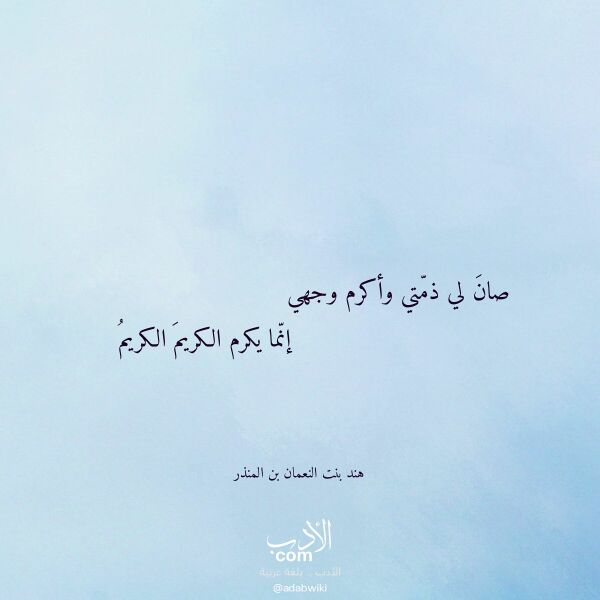 صانَ لي ذمّتي وأكرم وجهي
إنّما يكرم الكريمَ الكريمُ
هند بنت النعمان بن المنذر
الأدب
com
الأدب .. بلغة عربية
@adabwiki